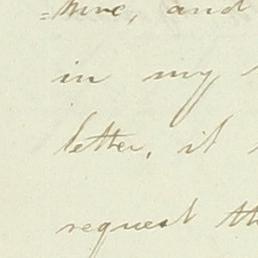 =tune, and
in my
letter, it
request th